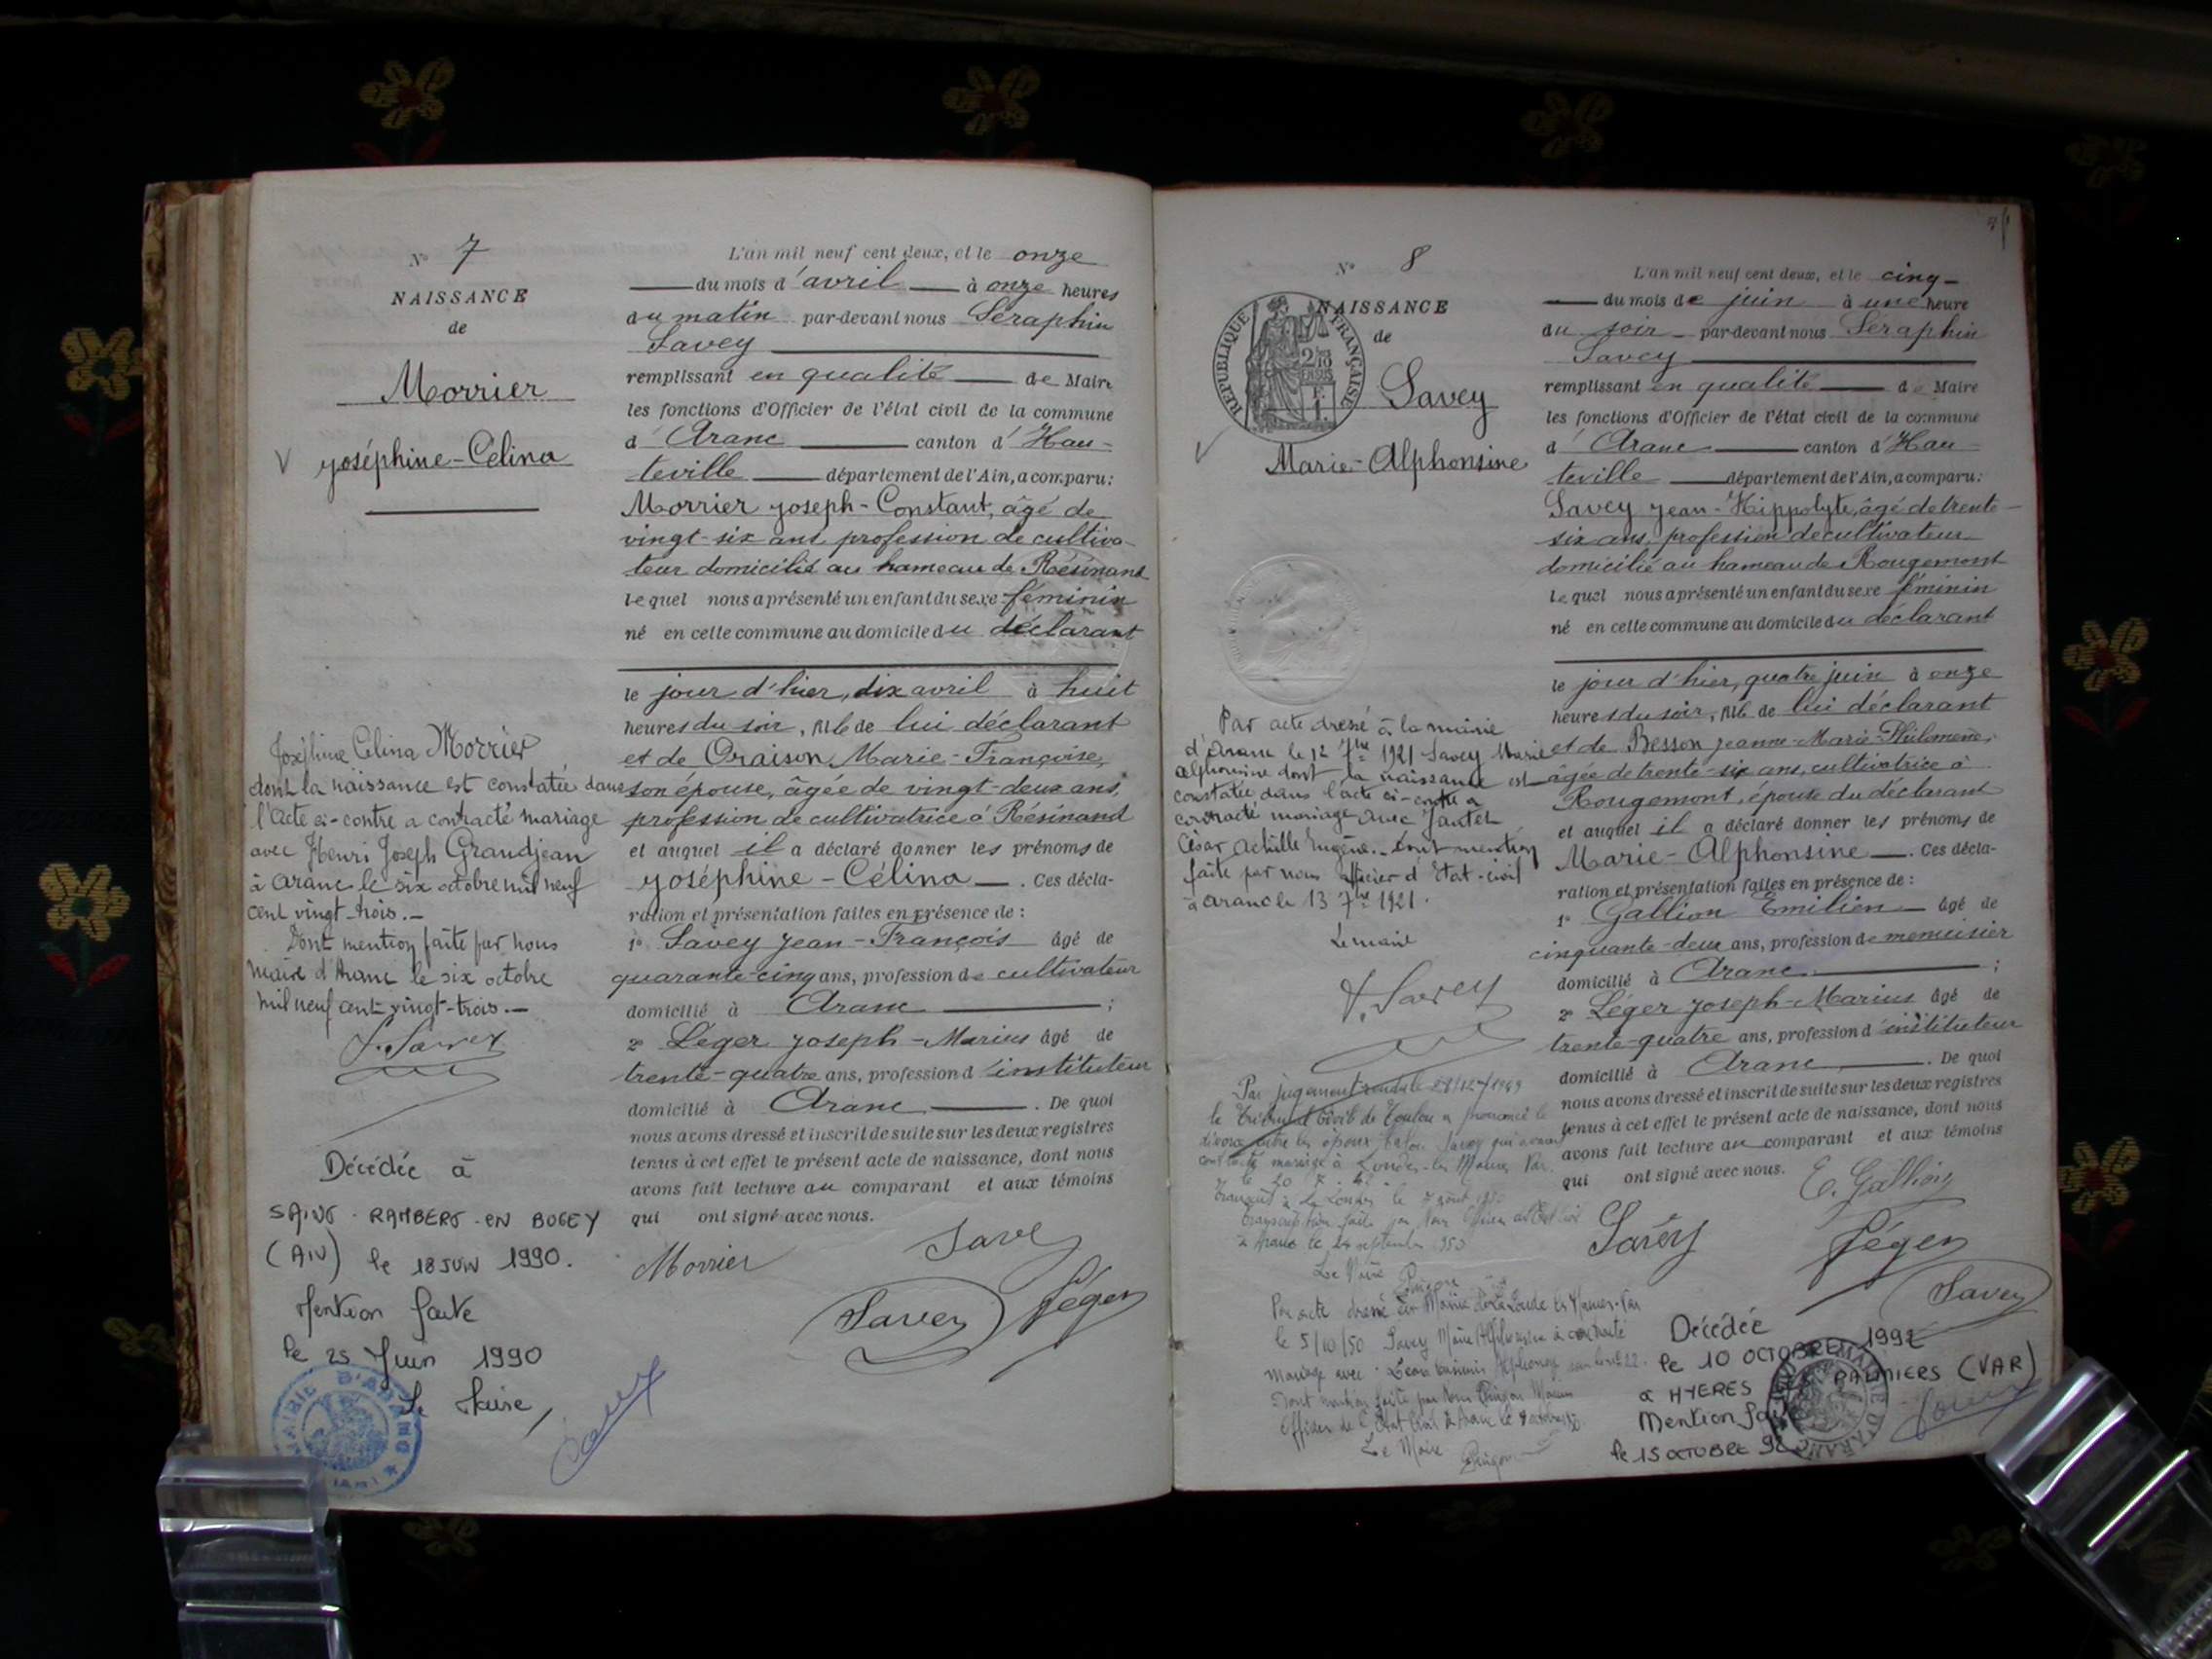 N° 7
NAISSANCE
de
Morrier
V Joséphine-Célina
Joséphine Célina Morrier
dont la naissance est constatée dans
l'acte ci-contre a contracté mariage
avec Henri Joseph Grandjean
à Aranc le six octobre mil neuf
cent vingt-trois.-
Dont mention faite par nous
Maire d'Aranc le six octobre
mil neuf cent vingt-trois.-
Savey
Décédée à
SAINT-RAMBERT-EN BUGEY
(AIN) le 18 JUIN 1990.
Mention faite
le 25 Juin 1990
Le Maire,
MAIRIE D'ARANC
(AIN)
L'an mil neuf cent deux, et le onze
du mois d'avril à onze heures
du matin par-devant nous Séraphin
Savey
remplissant en qualité de Maire
les fonctions d'Officier de l'état civil de la commune
d'Aranc canton d'Hau-
teville département de l'Ain, a comparu:
Morrier Joseph-Constant, âgé de
vingt-six ans, profession de cultiva-
teur domicilié au hameau de Résinand
lequel nous a présenté un enfant du sexe féminin
né en cette commune au domicile du déclarant
le jour d'hier, dix avril à huit
heures du soir, fille de lui déclarant
et de Oraison, Marie-Françoise,
son épouse, âgée de vingt-deux ans,
profession de cultivatrice à Résinand
et auquel il a déclaré donner les prénoms de
Joséphine-Célina. Ces décla-
ration et présentation faites en présence de :
1° Savey Jean-François âgé de
quarante-cinq ans, profession de cultivateur
domicilié à Aranc ;
2° Léger Joseph-Marius âgé de
trente-quatre ans, profession d'instituteur
domicilié à Aranc. De quoi
nous avons dressé et inscrit de suite sur les deux registres
tenus à cet effet le présent acte de naissance, dont nous
avons fait lecture au comparant et aux témoins
qui ont signé avec nous.
Morrier Savey
Savey Léger
N° 8
NAISSANCE
de
REPUBLIQUE FRANÇAISE
Savey
V Marie-Alphonsine
Par acte dressé à la mairie
d'Aranc le 12 7bre 1921 Savey Marie
Alphonsine dont la naissance est
constatée dans l'acte ci-contre a
contracté mariage avec Jautet
César Achille Eugène. Dont mention
faite par nous officier d'Etat-civil
à Aranc le 13 7bre 1921.
Le maire
Savey
Par jugement rendu le 28/12/1949
le Tribunal Civil de Toulon a prononcé le
divorce entre les époux Savey qui avaient
contracté mariage à Londe-les Maures Var
Transcription faite par
à Aranc le 24 septembre 1950
Le Maire
Par acte dressé en Mairie de La Londe les Maures-Var
le 5/10/50 Savey Marie Alphonsine a contracté
mariage avec
Dont mention faite par nous
Officier de l'Etat Civil d'Aranc le
Le Maire
L'an mil neuf cent deux, et le cinq
du mois de juin à une heure
du soir par-devant nous Séraphin
Savey
remplissant en qualité de Maire
les fonctions d'Officier de l'état civil de la commune
d'Aranc canton d'Hau-
teville département de l'Ain, a comparu:
Savey Jean-Hippolyte, âgé de trente-
six ans, profession de cultivateur
domicilié au hameau de Rougemont
lequel nous a présenté un enfant du sexe féminin
né en cette commune au domicile du déclarant
le jour d'hier, quatre juin à onze
heures du soir, fille de lui déclarant
et de Besson Jeanne-Marie-Philomène,
âgée de trente-six ans, cultivatrice à
Rougemont, épouse du déclarant
et auquel il a déclaré donner les prénoms de
Marie-Alphonsine. Ces décla-
ration et présentation faites en présence de :
1° Gallion Emilien âgé de
cinquante-deux ans, profession de menuisier
domicilié à Aranc ;
2° Léger Joseph-Marius âgé de
trente-quatre ans, profession d'instituteur
domicilié à Aranc. De quoi
nous avons dressé et inscrit de suite sur les deux registres
tenus à cet effet le présent acte de naissance, dont nous
avons fait lecture au comparant et aux témoins
qui ont signé avec nous.
E. Gallion
Savey Léger
Savey
Décédée
le 10 OCTOBRE 1992
à HYERES LES PALMIERS (VAR)
Mention faite
le 15 OCTOBRE 92